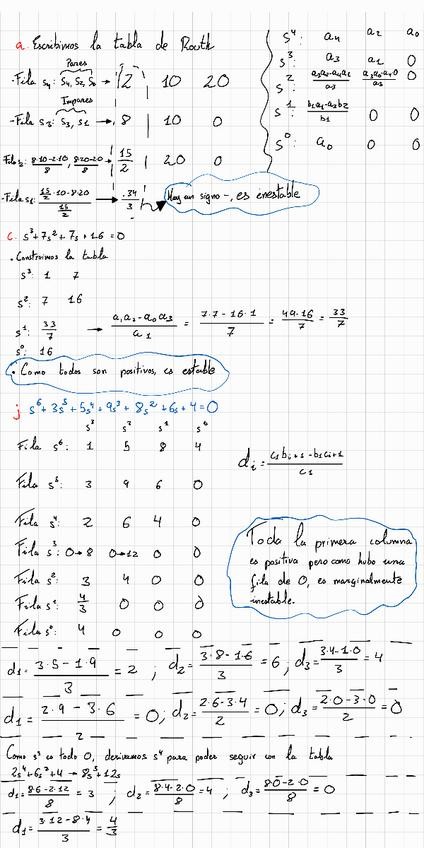 a. Escribimos la tabla de Routh
Pares
-Fila s4: S4, S2, S0 → 2 10 20
Impares
-Fila s3: S3, S1 → 8 10 0
Fila s2: 8·10-2·10/8, 8·20-20/8 15/2 20 0
-Fila s1: 15/2·10-8·20 / 15/2 → -34/3
Hay un signo -, es inestable
s4 a4 a2 a0
s3 a3 a1 0
s2: 0
s1: 0 0
s0: a0 0 0
c. s³+7s²+7s+16=0
• Construimos la tabla
s³: 1 7
s²: 7 16
s1: 33/7 → a1a2-a0a3/a1 = 7·7-16·1/7 = 49-16/7 = 33/7
s0: 16
• Como todos son positivos, es estable
j s⁶+3s⁵+5s⁴+9s³+8s²+6s+4=0
s³ s² s¹ s⁰
Fila s⁶: 1 5 8 4
Fila s⁵: 3 9 6 0
Fila s⁴: 2 6 4 0
Fila s³: 0→8 0→12 0 0
Fila s²: 3 4 0 0
Fila s¹: 4/3 0 0 0
Fila s⁰: 4 0 0 0
di = c1bi+1-b1ci+1/c1
Toda la primera columna
es positiva pero como hubo una
fila de 0, es marginalmente
inestable.
d1=3·5-1·9/3=2 ; d2=3·8-1·6/3=6 ; d3=3·4-1·0/3=4
d1=2·9-3·6/2=0; d2=2·6-3·4/2=0; d3=2·0-3·0/2=0
Como s³ es todo 0, derivamos s⁴ para poder seguir con la tabla
2s⁴+6s²+4→8s³+12s
d1=8·6-2·12/8=3 ; d2=8·4-2·0/8=4 ; d3=8·0-2·0/8=0
d1=3·12-8·4/3=4/3